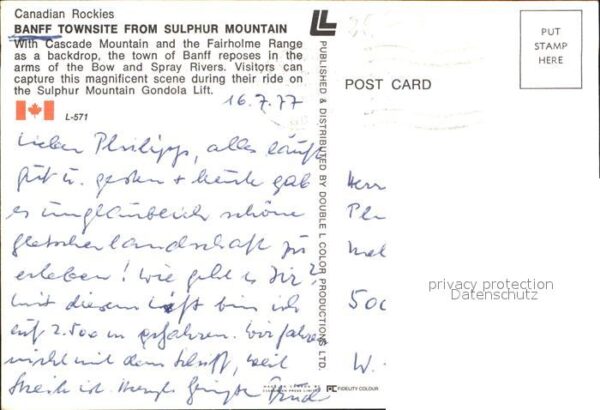 Canadian Rockies
BANFF TOWNSITE FROM SULPHUR MOUNTAIN
With Cascade Mountain and the Fairholme Range
as a backdrop, the town of Banff reposes in the
arms of the Bow and Spray Rivers. Visitors can
capture this magnificent scene during their ride on
the Sulphur Mountain Gondola Lift.
L-571
16.7.77
Lieber Philipp, alles läuft
gut u. gestern + heute gab
es unglaublich schöne
Gletscherlandschaft zu
erleben! Wie geht es Dir?
Mit diesem Lift bin ich
auf 2.500 m gefahren. Wir fahren
nicht mit dem Schiff, weil
Streik ist.
PUBLISHED & DISTRIBUTED BY DOUBLE L COLOR PRODUCTIONS LTD.
POST CARD
PUT
STAMP
HERE
Herr
500
W.
privacy protection
Datenschutz
FIDELITY COLOUR